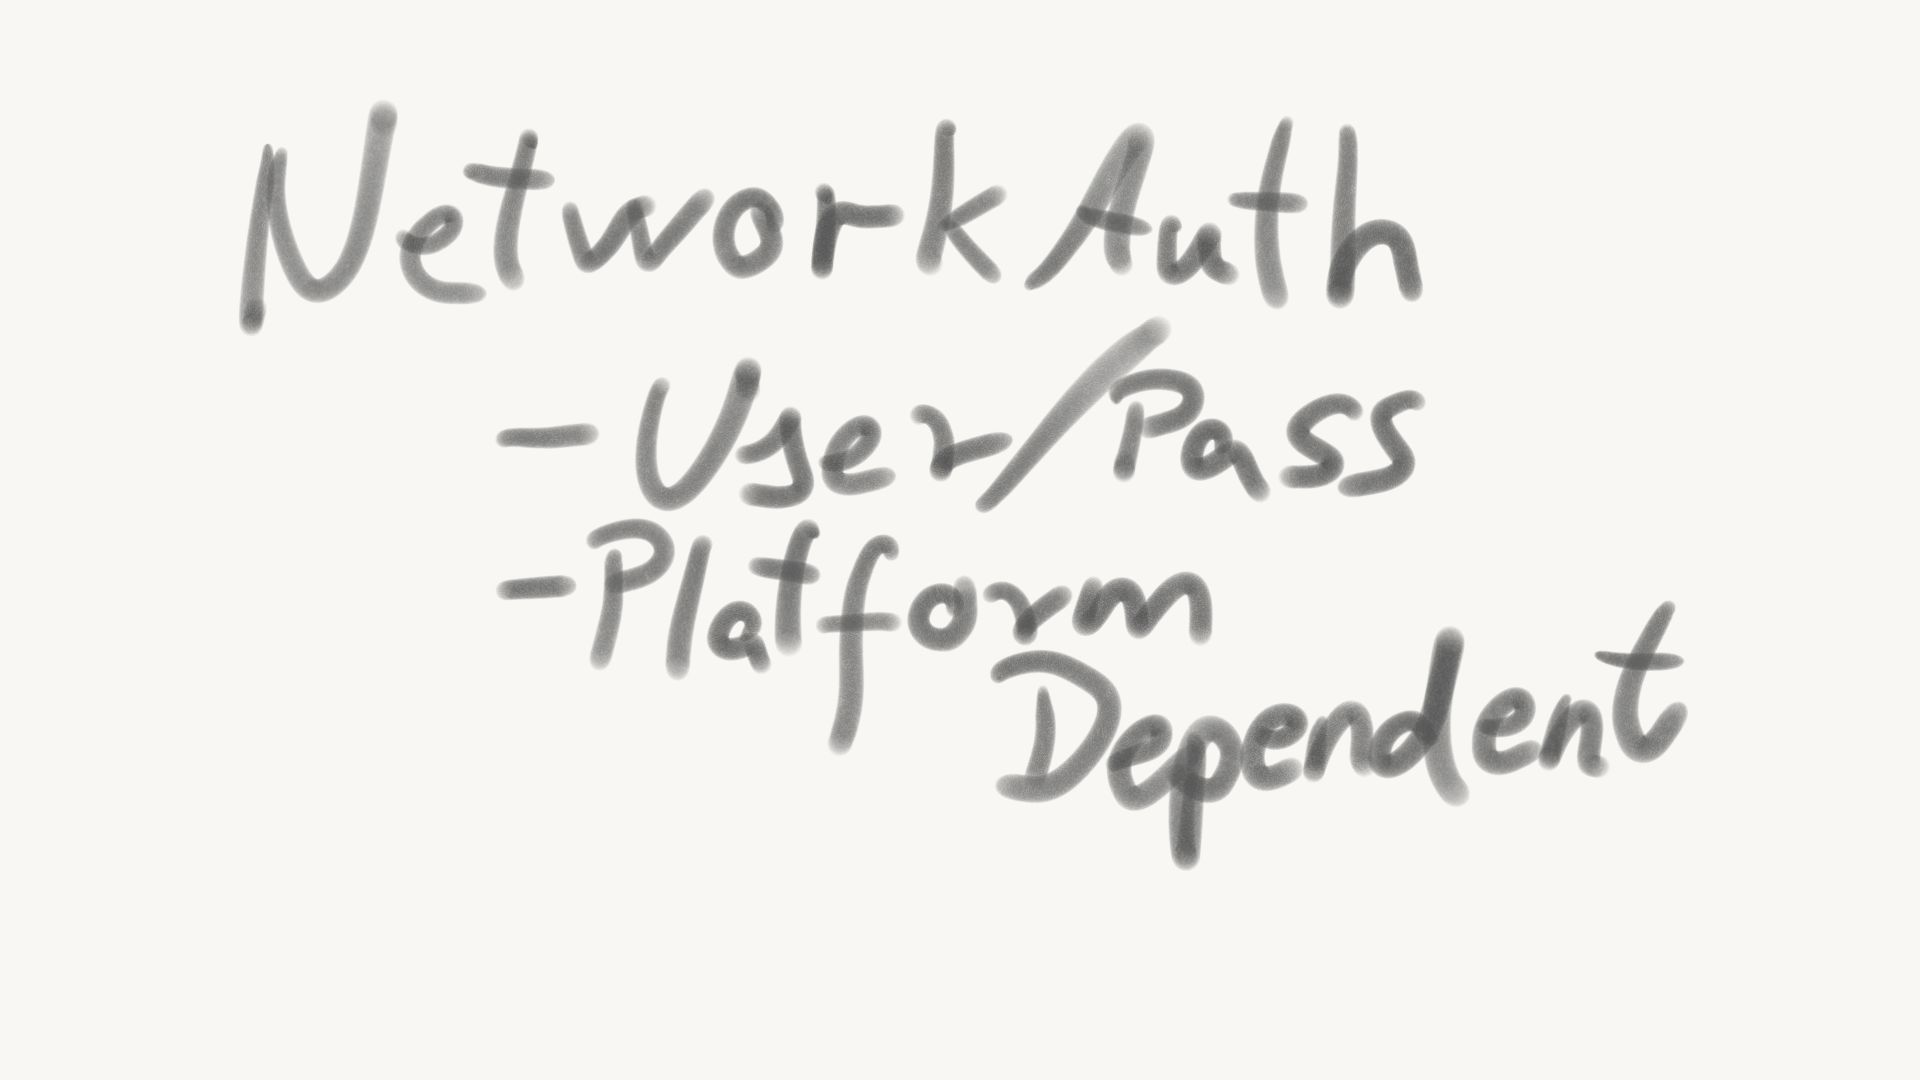 Network Auth
- User/Pass
- Platform
Dependent